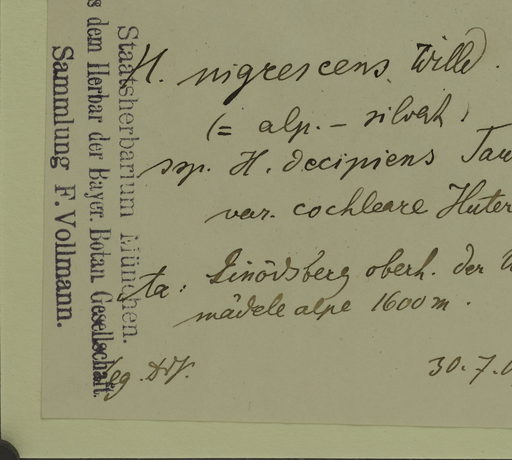 H. nigrescens Willd.
(= alp. – silvat.)
ssp. H. decipiens Tau
var. cochleare Huter
Linödsberg oberh. der
mädele alpe 1600 m.
leg.
30.7.
Staatsherbarium München.
s dem Herbar der Bayer. Botan. Gesellschaft.
Sammlung F. Vollmann.